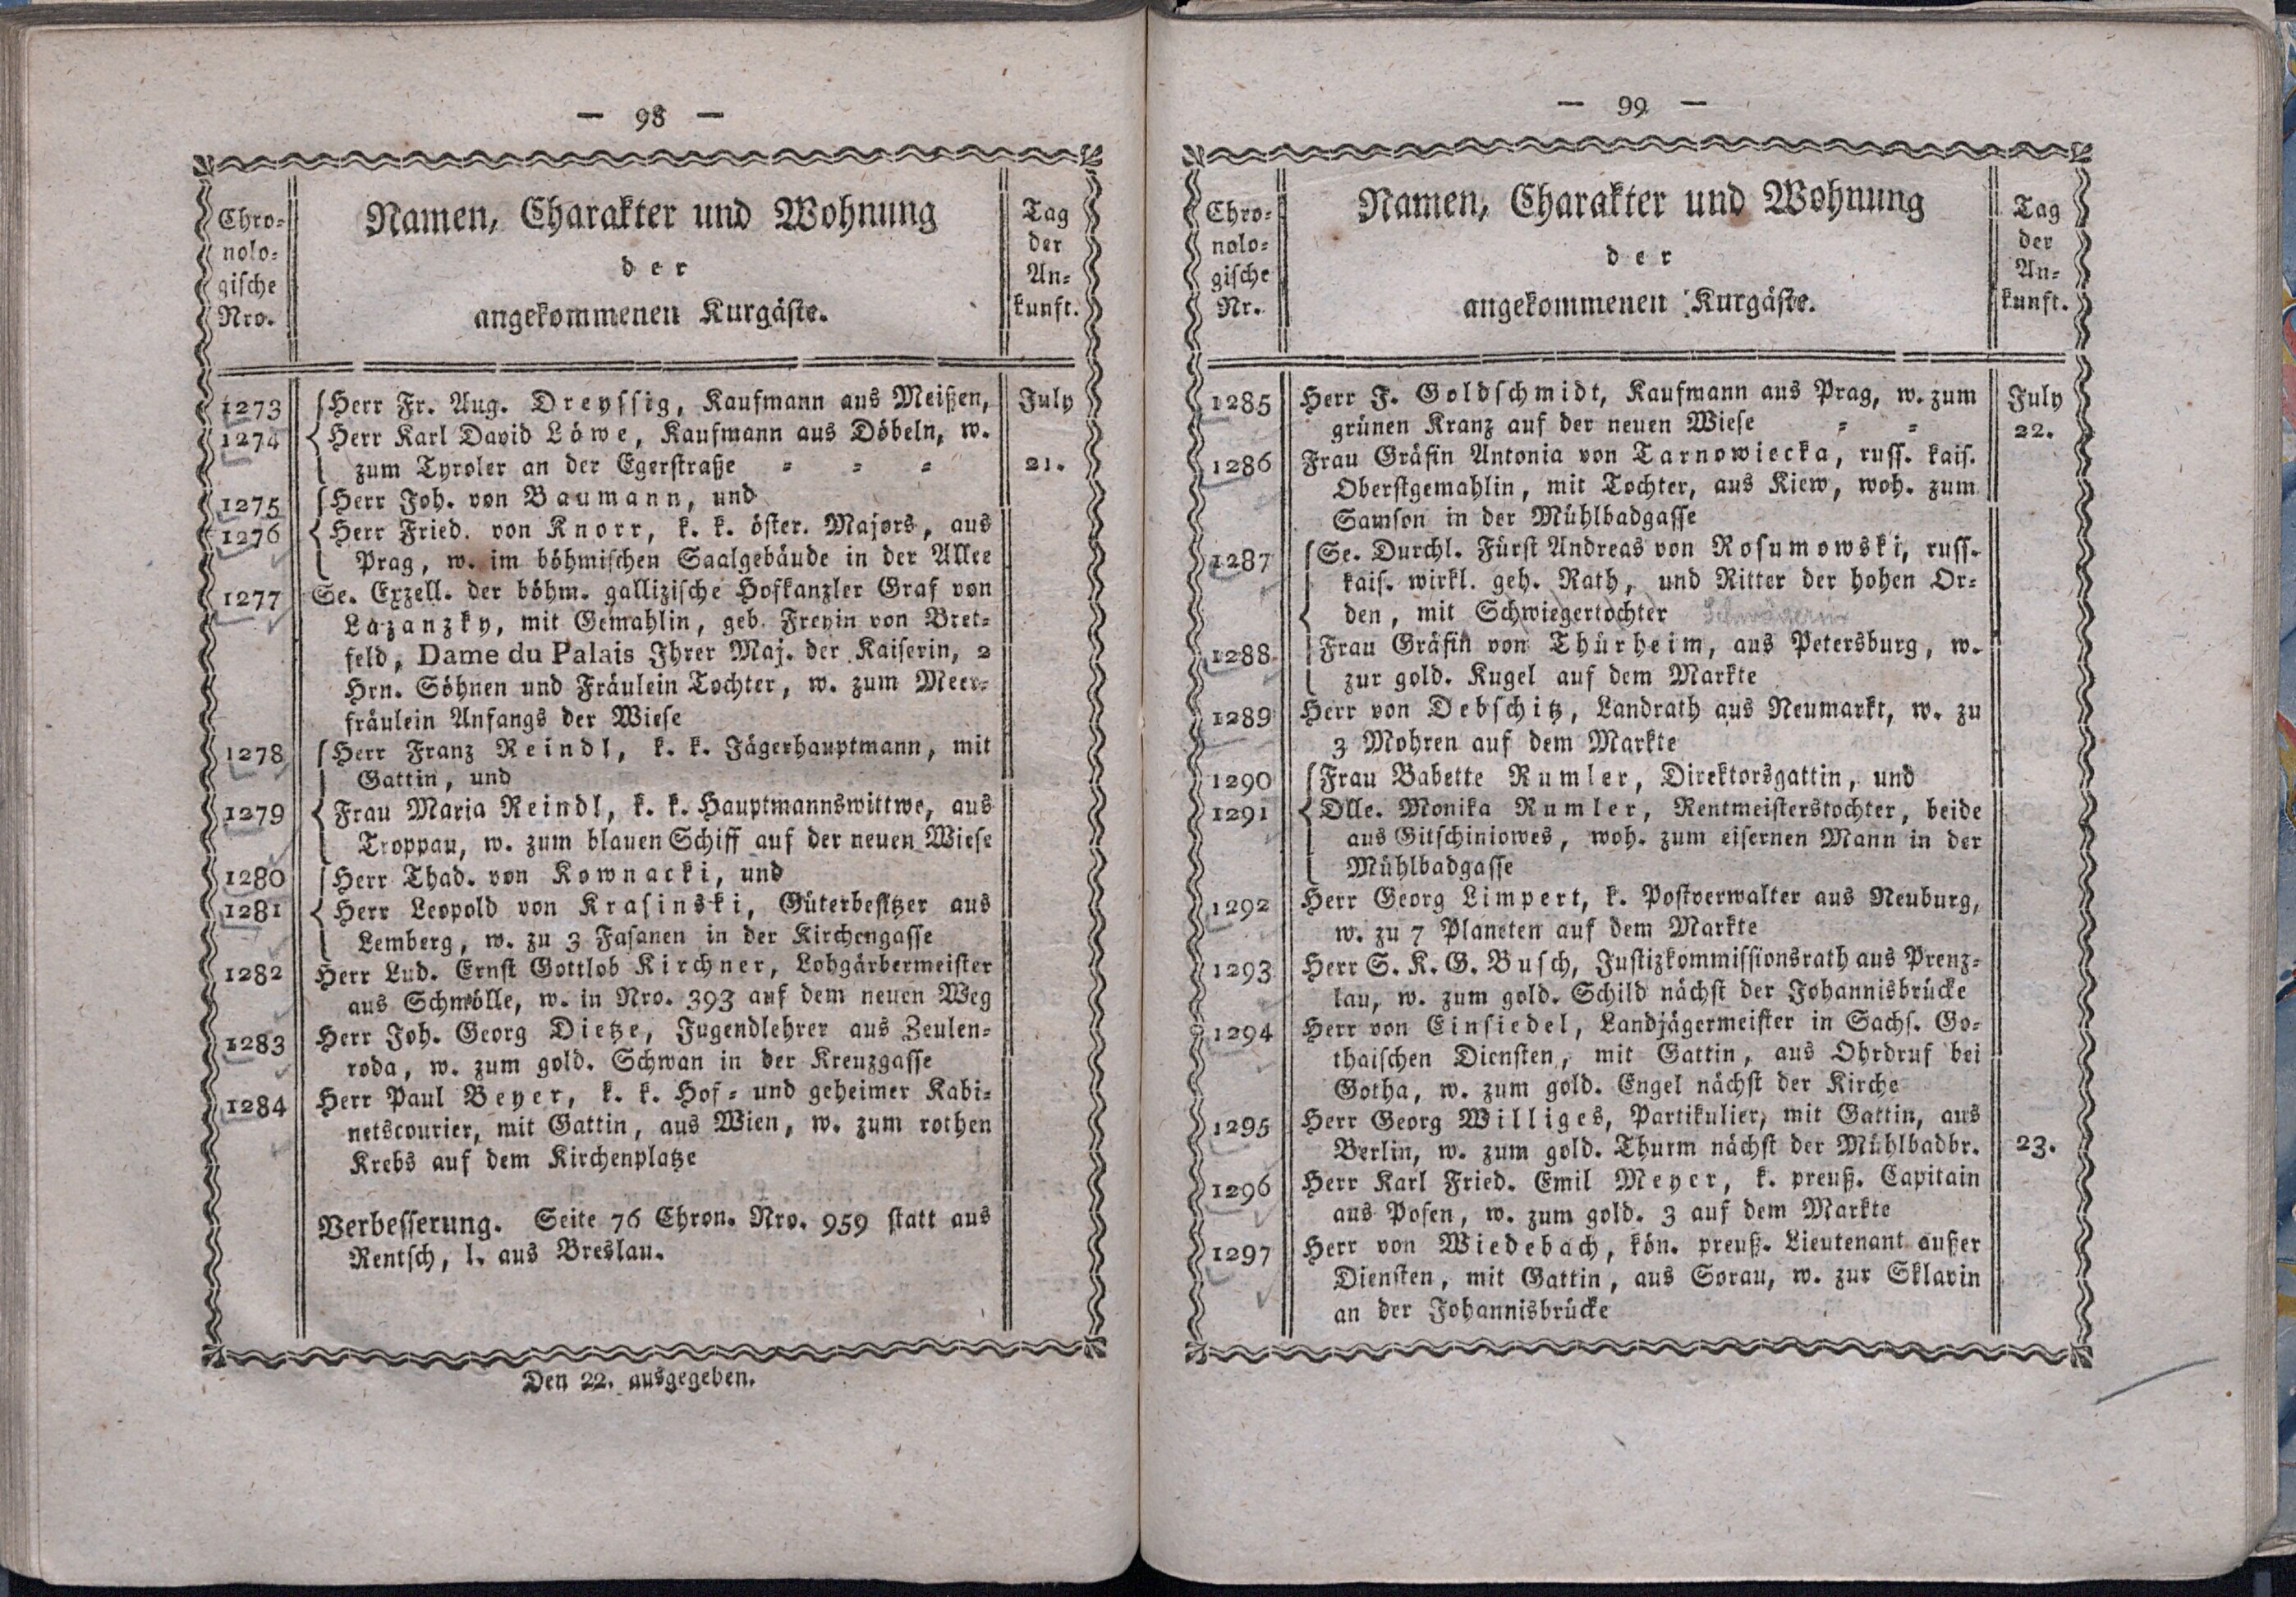 — 98 —
Chro-
nolo-
gische
Nro.
Namen, Charakter und Wohnung
der
angekommenen Kurgäste.
Tag
der
An-
kunft.
1273 Herr Fr. Aug. Dreyssig, Kaufmann aus Meißen, July
1274 Herr Karl David Löwe, Kaufmann aus Döbeln, w.
zum Tyroler an der Egerstraße = = = 21.
1275 Herr Joh. von Baumann, und
1276 Herr Fried. von Knorr, k. k. öster. Majors, aus
Prag, w. im böhmischen Saalgebäude in der Allee
1277 Se. Exzell. der böhm. gallizische Hofkanzler Graf von
Lazanzky, mit Gemahlin, geb. Freyin von Bret-
feld, Dame du Palais Ihrer Maj. der Kaiserin, 2
Hrn. Söhnen und Fräulein Tochter, w. zum Meer-
fräulein Anfangs der Wiese
1278 Herr Franz Reindl, k. k. Jägerhauptmann, mit
Gattin, und
1279 Frau Maria Reindl, k. k. Hauptmannswittwe, aus
Troppau, w. zum blauen Schiff auf der neuen Wiese
1280 Herr Thad. von Kownacki, und
1281 Herr Leopold von Krasinski, Güterbesitzer aus
Lemberg, w. zu 3 Fasanen in der Kirchengasse
1282 Herr Lud. Ernst Gottlob Kirchner, Lohgärbermeister
aus Schmölle, w. in Nro. 393 auf dem neuen Weg
1283 Herr Joh. Georg Dietze, Jugendlehrer aus Zeulen-
roda, w. zum gold. Schwan in der Kreuzgasse
1284 Herr Paul Beyer, k. k. Hof- und geheimer Kabi-
netscourier, mit Gattin, aus Wien, w. zum rothen
Krebs auf dem Kirchenplatze
Verbesserung. Seite 76 Chron. Nro. 959 statt aus
Rentsch, l. aus Breslau.
Den 22. ausgegeben.
— 99 —
Chro-
nolo-
gische
Nr.
Namen, Charakter und Wohnung
der
angekommenen Kurgäste.
Tag
der
An-
kunft.
1285 Herr J. Goldschmidt, Kaufmann aus Prag, w. zum July
grünen Kranz auf der neuen Wiese = = 22.
1286 Frau Gräfin Antonia von Tarnowiecka, russ. kais.
Oberstgemahlin, mit Tochter, aus Kiew, woh. zum
Samson in der Mühlbadgasse
1287 Se. Durchl. Fürst Andreas von Rosumowski, russ.
kais. wirkl. geh. Rath, und Ritter der hohen Or-
den, mit Schwiegertochter Schwägerin
1288 Frau Gräfin von Thürheim, aus Petersburg, w.
zur gold. Kugel auf dem Markte
1289 Herr von Debschitz, Landrath aus Neumarkt, w. zu
3 Mohren auf dem Markte
1290 Frau Babette Rumler, Direktorsgattin, und
1291 Dlle. Monika Rumler, Rentmeisterstochter, beide
aus Gitschiniowes, woh. zum eisernen Mann in der
Mühlbadgasse
1292 Herr Georg Limpert, k. Postverwalter aus Neuburg,
w. zu 7 Planeten auf dem Markte
1293 Herr S. K. G. Busch, Justizkommissionsrath aus Prenz-
lau, w. zum gold. Schild nächst der Johannisbrücke
1294 Herr von Einsiedel, Landjägermeister in Sachs. Go-
thaischen Diensten, mit Gattin, aus Ohrdruf bei
Gotha, w. zum gold. Engel nächst der Kirche
1295 Herr Georg Williges, Partikulier, mit Gattin, aus
Berlin, w. zum gold. Thurm nächst der Mühlbadbr. 23.
1296 Herr Karl Fried. Emil Meyer, k. preuß. Capitain
aus Posen, w. zum gold. 3 auf dem Markte
1297 Herr von Wiedebach, kön. preuß. Lieutenant außer
Diensten, mit Gattin, aus Sorau, w. zur Sklavin
an der Johannisbrücke